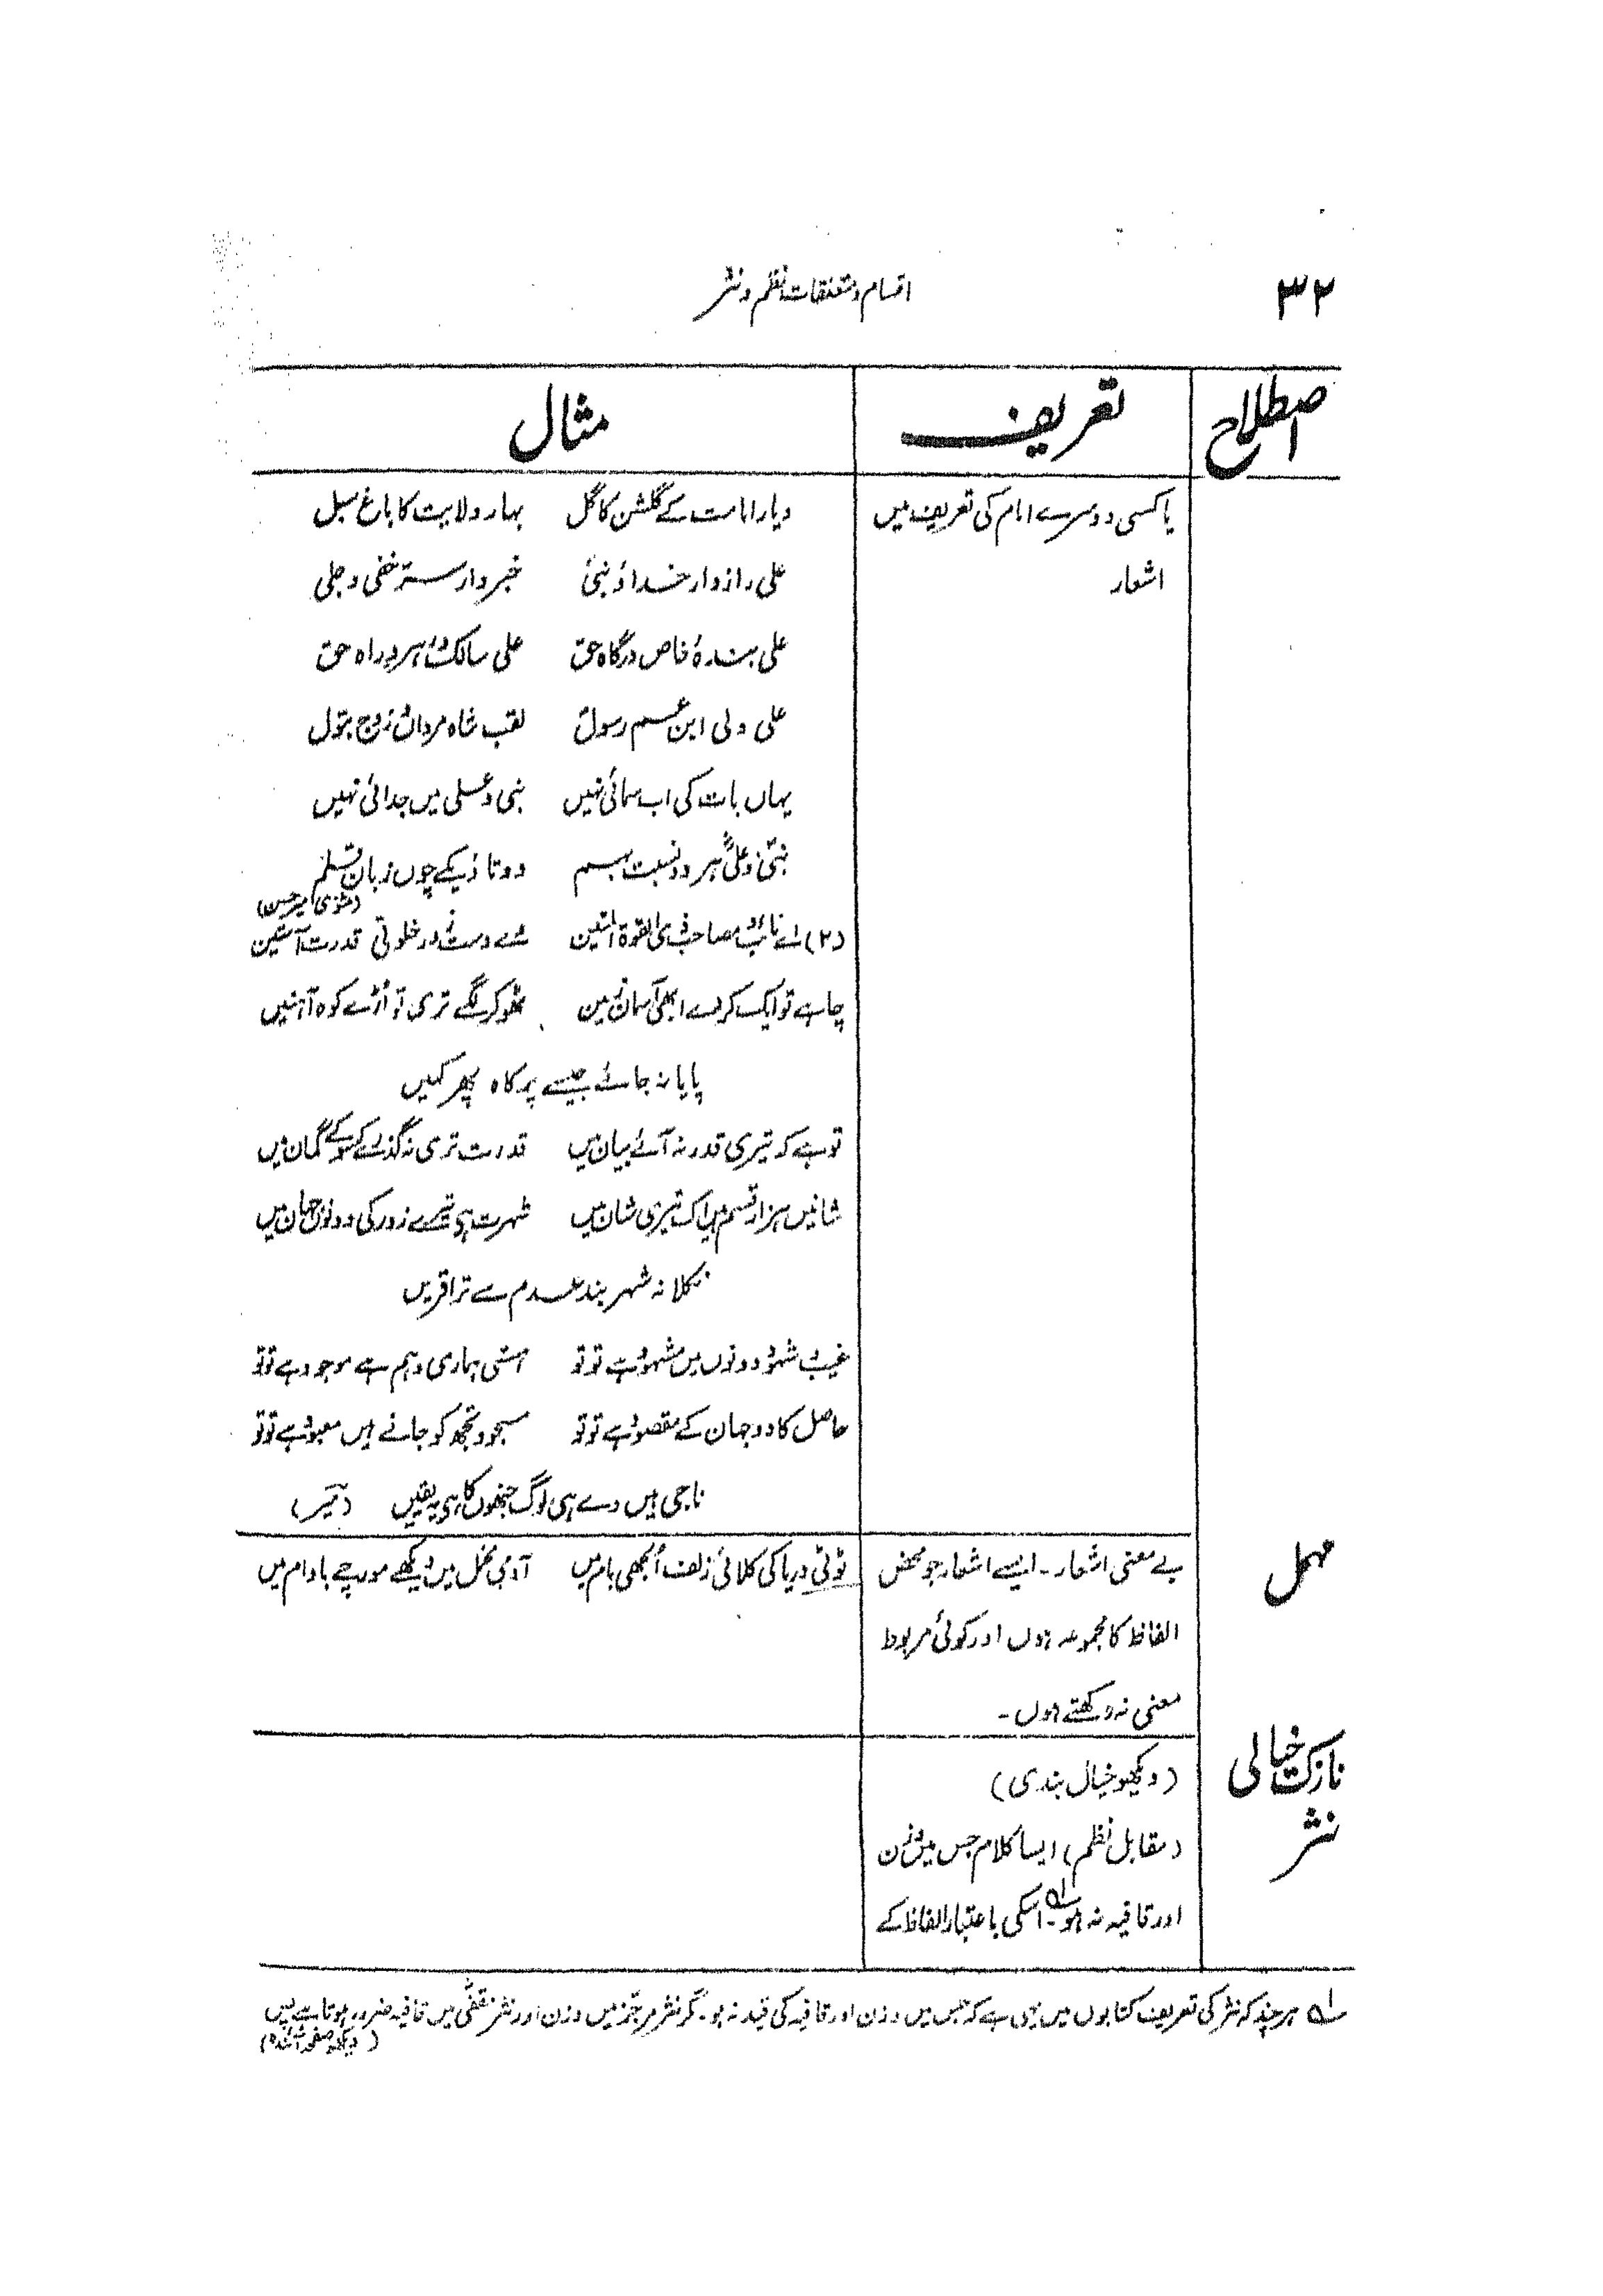 ۳۲
اقسام و متعلقات نظم و نثر
اصطلاح تعریف مثال
یا کسی دوسرے امام کی تعریف میں
اشعار
دیار امامت کے گلشن کا گل بہار ولایت کا باغ سبل
علی رازدار خدا و نبیؐ خبردار سرّ خفی و جلی
علی بندۂ خاص درگاہ حق علی سالک و رہرو راہ حق
علی ولی ابن عم رسولؐ لقب شاہ مرداں زوج بتول
یہاں بات کی اب سمائی نہیں نبی و علی میں جدائی نہیں
نبیؐ و علیؑ ہر دو نسبت بہم دو تا و یکے چوں زبان قلم
(مثنوی میر حسن)
(۲) اے نائب مصاحب ذی القوۃ المتین وے دست زور خلوتی قدرت آستین
چاہے تو ایک کر دے ابھی آسمان زمین ٹھوکر لگے تری تو اُڑے کوہ آہنیں
پایا نہ جائے جیسے پر کاہ پھر کہیں
تو ہے کہ تیری قدر نہ آئے بیان میں قدرت تری نہ گذرے کسو کے گمان میں
شانیں ہزار قسم ہیں اک تیری شان میں شہرت ہی تیرے زور کی دونوں جہان میں
نکلا نہ شہر بند عدم سے ترا قریں
غیب شہود دونوں میں مشہود ہے تو تو ہستی ہماری وہم ہے موجود ہے تو تو
حاصل کا دو جہان کے مقصود ہے تو تو مسجود تجھ کو جانے ہیں معبود ہے تو تو
ناجی ہیں وے ہی لوگ جنھوں کا ہی یہ یقیں (میرؔ)
مہمل
بے معنی اشعار۔ ایسے اشعار جو محض
الفاظ کا مجموعہ ہوں اور کوئی مربوط
معنی نہ رکھتے ہوں۔
ٹوٹی دریا کی کلائی زلف اُلجھی بام میں آدمی مخمل میں دیکھے مورچے بادام میں
نازک خیالی
(دیکھو خیال بندی)
نثر
(مقابل نظم) ایسا کلام جس میں وزن
اور قافیہ نہ ہو۔ اسکی باعتبار الفاظ کے
لہ ہر چند کہ نثر کی تعریف کتابوں میں یہی ہے کہ جس میں وزن اور قافیہ کی قید نہ ہو۔ مگر نثر مرجّز میں وزن اور نثر مقفّیٰ میں قافیہ ضرور ہوتا ہے پس
(دیکھو صفحہ آئندہ)